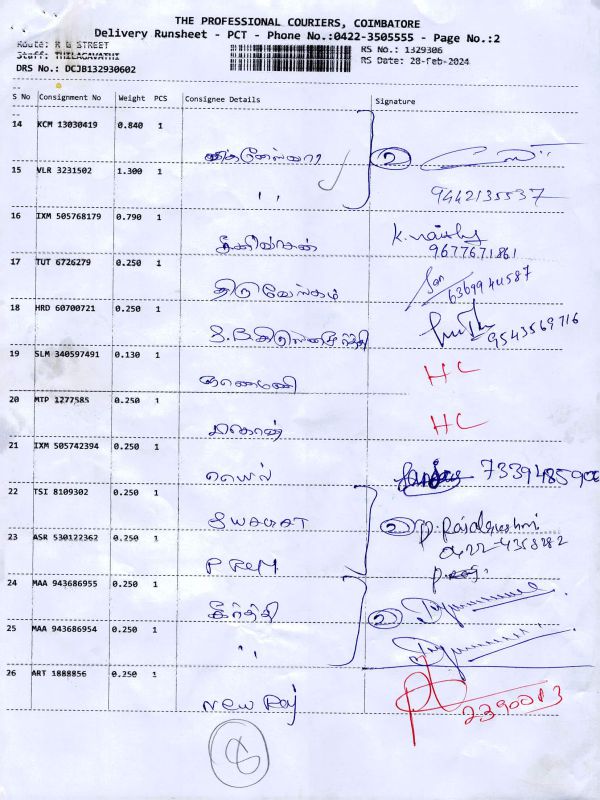 THE PROFESSIONAL COURIERS, COIMBATORE
Delivery Runsheet - PCT - Phone No.:0422-3505555 - Page No.:2
Route: R G STREET
Staff: THILAGAVATHI
RS No.: 1329306
DRS No.: DCJB132930602
RS Date: 28-Feb-2024
S No Consignment No Weight PCS Consignee Details Signature
14 KCM 13030419 0.840 1
2
15 VLR 3231502 1.300 1 " 9442135537
16 IXM 505768179 0.790 1 K.
9677671861
17 TUT 6726279 0.250 1 திருவேங்கடம்
6369944587
18 HRD 60700721 0.250 1
9543569716
19 SLM 340597491 0.130 1 HC
20 MTP 1277585 0.250 1 HC
21 IXM 505742394 0.250 1
22 TSI 8109302 0.250 1 2
23 ASR 530122362 0.250 1 PREM
24 MAA 943686955 0.250 1 கீர்த்தி 2
25 MAA 943686954 0.250 1 "
26 ART 1888856 0.250 1 New Raj 2390013
8